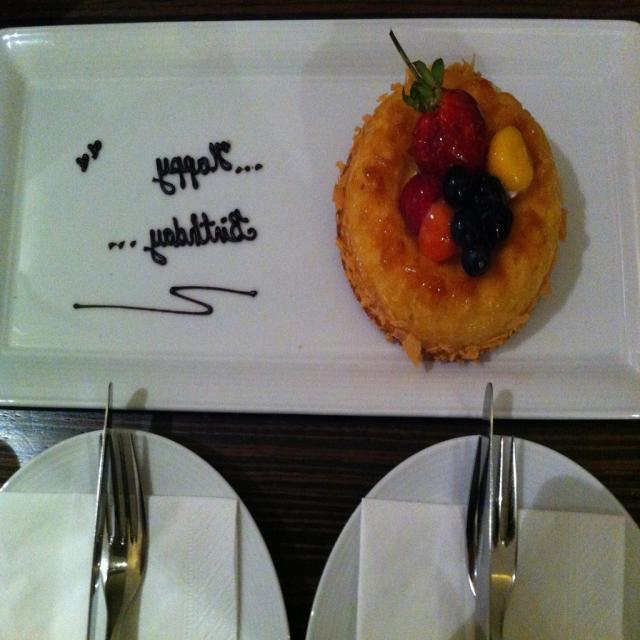 ...Happy
Birthday...